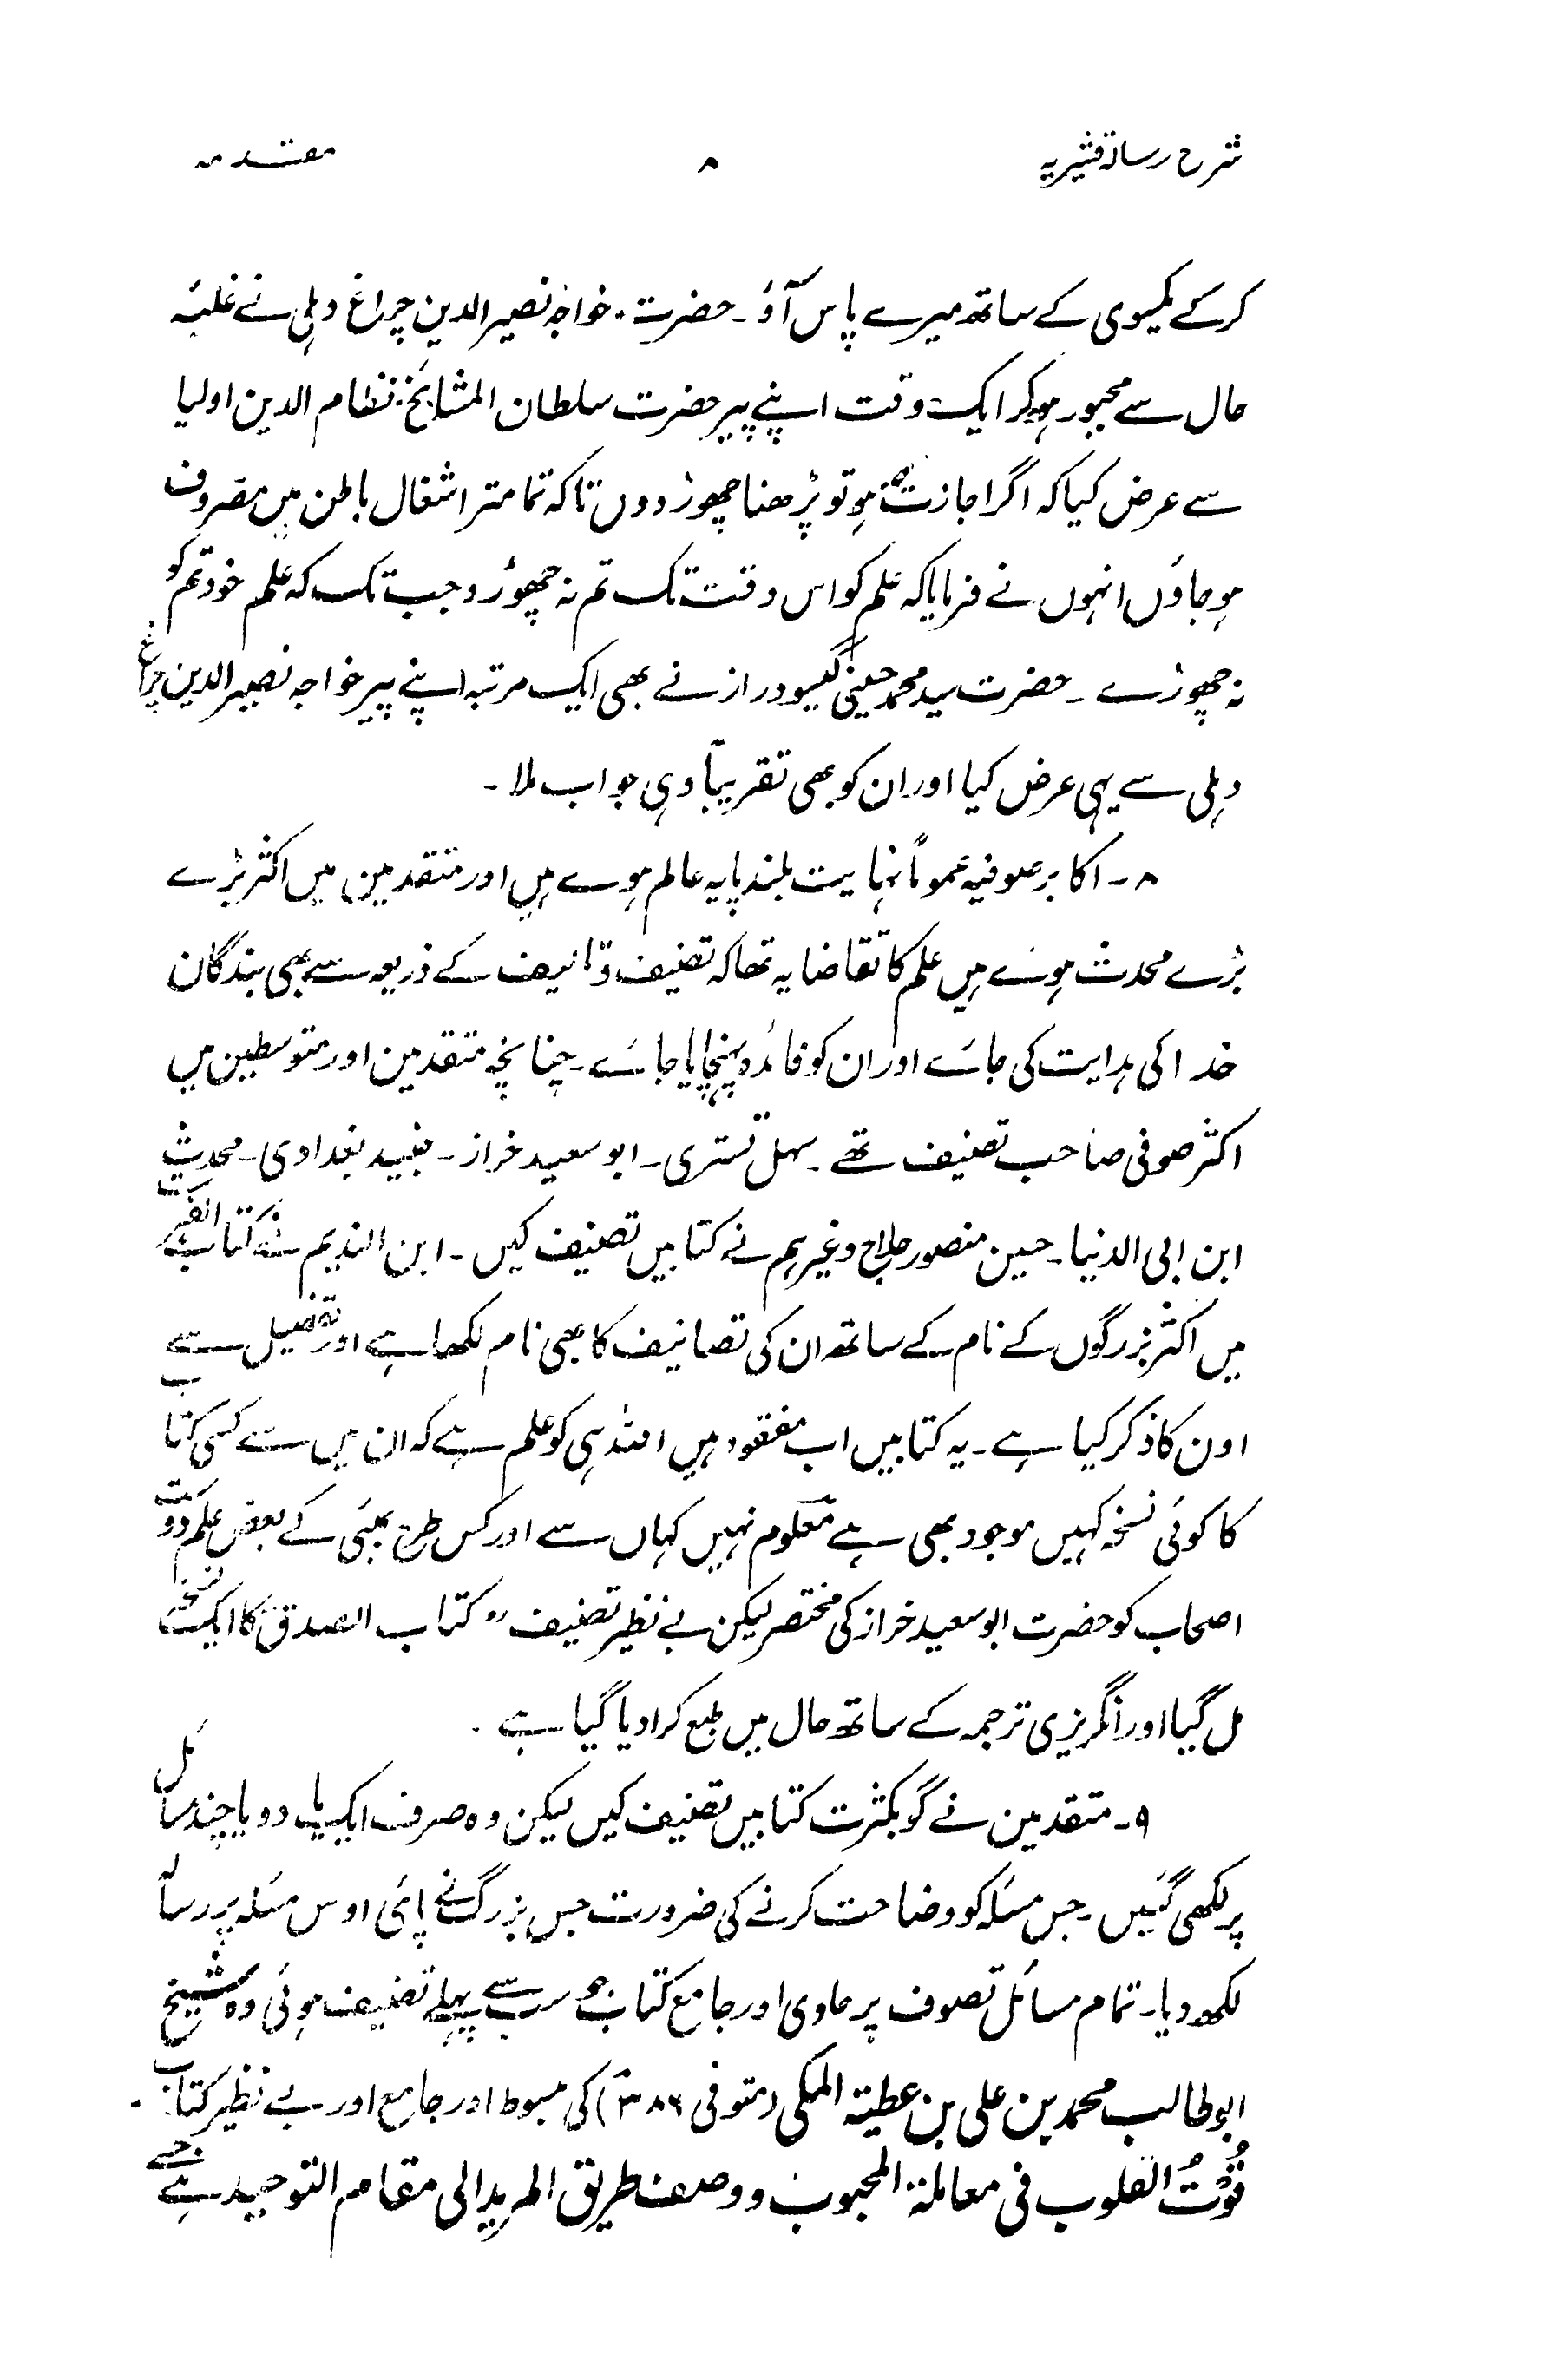 شرح رسالۂ قشیریہ ۸ مقدمہ
کرکے یکسوی کے ساتھ میرے پاس آؤ۔ حضرت خواجہ نصیر الدین چراغ دہلی نے غلبۂ
حال سے مجبور ہوکر ایک وقت اپنے پیر حضرت سلطان المشائخ نظام الدین اولیا
سے عرض کیا کہ اگر اجازت ہو تو پڑھنا چھوڑ دوں تاکہ تمامتر اشغال باطن میں مصروف
ہو جاؤں انہوں نے فرمایا کہ علم کو اس وقت تک تم نہ چھوڑو جب تک کہ علم خود تم کو
نہ چھوڑے ۔ حضرت سید محمد حسینی گیسودراز نے بھی ایک مرتبہ اپنے پیر خواجہ نصیر الدین چراغ
دہلی سے یہی عرض کیا اور ان کو بھی تقریباً وہی جواب ملا ۔
۸ ۔ اکابر صوفیہ عموماً نہایت بلند پایہ عالم ہوے ہیں اور متقدمین میں اکثر بڑے
بڑے محدث ہوئے ہیں علم کا تقاضا یہ تھا کہ تصنیف و تالیف کے ذریعہ سے بھی بندگان
خدا کی ہدایت کی جائے اور ان کو فائدہ پہنچایا جائے ۔ چنانچہ متقدمین اور متوسطین میں
اکثر صوفی صاحب تصنیف تھے ۔ سہل تستری ۔ ابو سعید خراز ۔ جنید بغدادی ۔ محدث
ابن ابی الدنیا ۔ حسین منصور حلاج وغیرہم نے کتابیں تصنیف کیں ۔ ابن الندیم نے کتاب الفہرست
میں اکثر بزرگوں کے نام کے ساتھ ان کی تصانیف کا بھی نام لکھا ہے اور تفصیل سے
اون کا ذکر کیا ہے ۔ یہ کتابیں اب مفقود ہیں اللہ ہی کو علم ہے کہ ان میں سے کسی کتاب
کا کوئی نسخہ کہیں موجود بھی ہے معلوم نہیں کہاں سے اور کس طرح بمبئی کے بعض علم دوست
اصحاب کو حضرت ابو سعید خراز کی مختصر لیکن بے نظیر تصنیف " کتاب الصدق کا ایک نسخہ
مل گیا اور انگریزی ترجمہ کے ساتھ حال میں طبع کرا دیا گیا ہے ۔
۹ ۔ متقدمین نے گو بکثرت کتابیں تصنیف کیں لیکن وہ صرف ایک یا دو یا چند مسائل
پر لکھی گئیں ۔ جس مسئلہ کو وضاحت کرنے کی ضرورت جس بزرگ نے پائی اوس مسئلہ پر رسالہ
لکھ دیا ۔ تمام مسائل تصوف پر حاوی اور جامع کتاب جو سب سے پہلے تصنیف ہوئی وہ شیخ
ابوطالب محمد بن علی بن عطیۃ المکی (متوفی ۳۸۶) کی مبسوط اور جامع اور بے نظیر کتاب
قُوْتُ القلوب فی معاملۃ المحبوب و وصف طریق المرید الی مقام التوحید ہے جسے